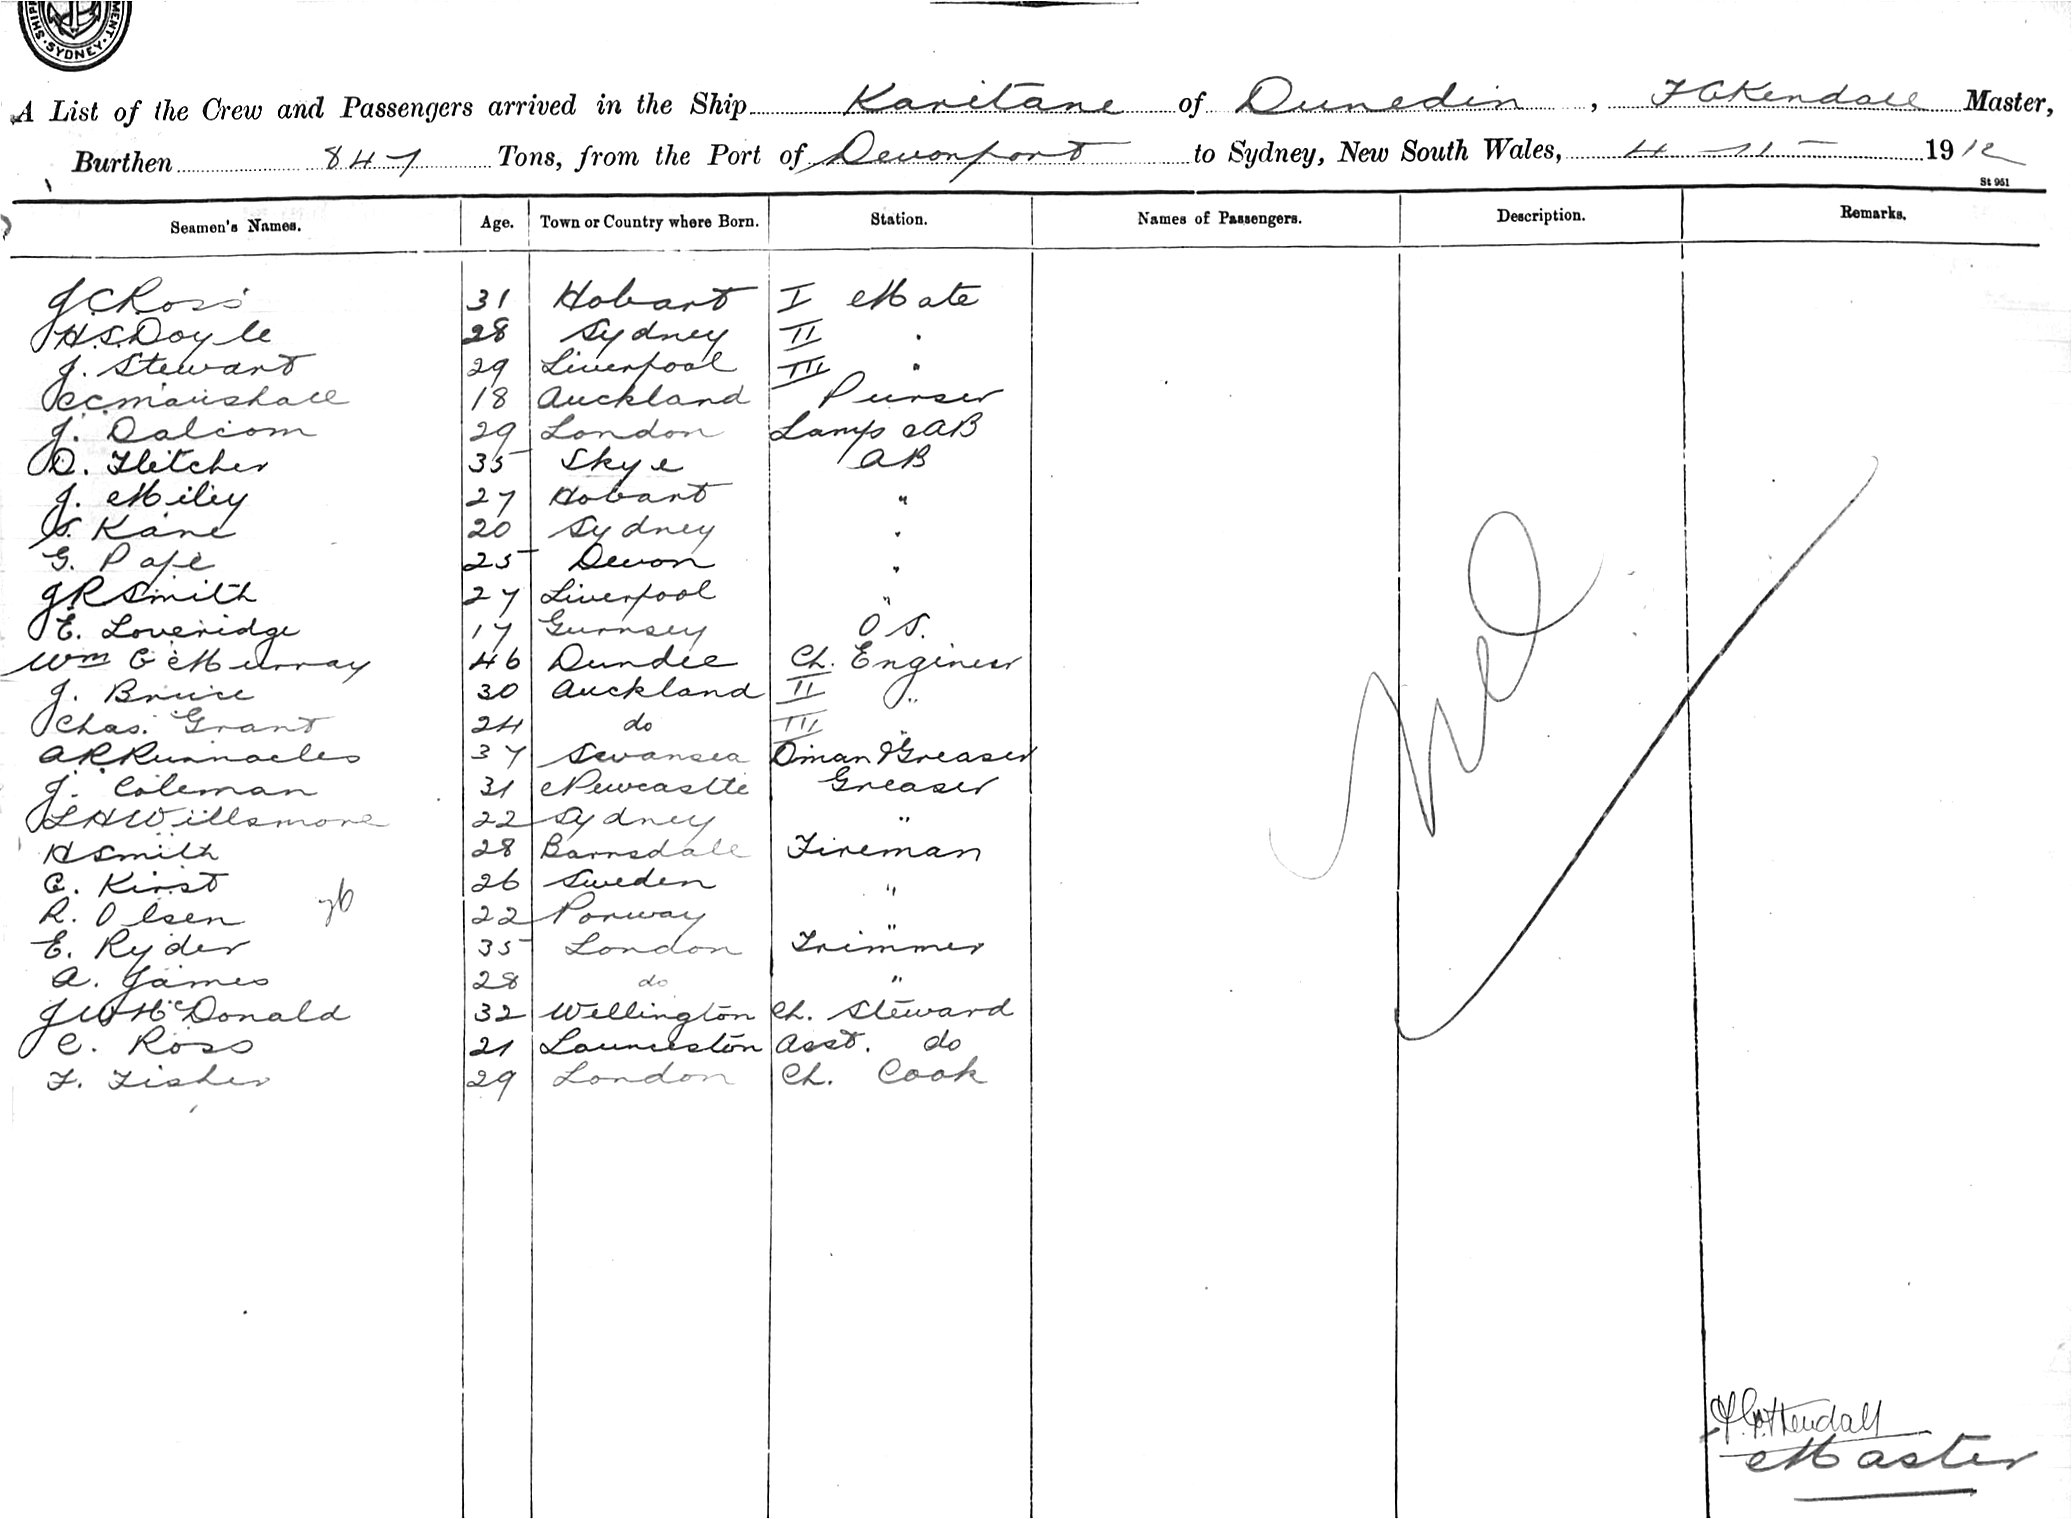 SHIPPI
MENT.
SYDNEY
A List of the Crew and Passengers arrived in the Ship Karitane of Dunedin, F G Kendall Master,
Burthen 847 Tons, from the Port of Devonport to Sydney, New South Wales, 4 - 11 - 1912
St 961
Seamen's Names. Age. Town or Country where Born. Station. Names of Passengers. Description. Remarks.
J C Ross 31 Hobart I Mate
H.S. Doyle 28 Sydney II "
J. Stewart 29 Liverpool III "
C.C. Marishall 18 Auckland Purser
J. Dalcom 29 London Lamps AB
D. Fletcher 35 Skye AB
J. Miley 27 Hobart "
S. Kane 20 Sydney "
G. Pape 25 Devon "
J R Smith 27 Liverpool "
E. Loveridge 17 Gurnsey O S.
Wm G Murray 46 Dundee Ch. Engineer
J. Bruce 30 Auckland II "
Chas. Grant 24 do III "
A R Runnacles 37 Swansea Dman & Greaser
J. Coleman 31 Newcastle Greaser
L H Willsmore 22 Sydney "
H Smith 28 Barnsdale Fireman
C. Kirst 26 Sweden "
R. Olsen 22 Norway "
E. Ryder 35 London Trimmer
A. James 28 do "
J W McDonald 32 Wellington Ch. Steward
C. Ross 21 Launceston Asst. do
F. Fisher 29 London Ch. Cook
Nil
F. G. Kendall
Master